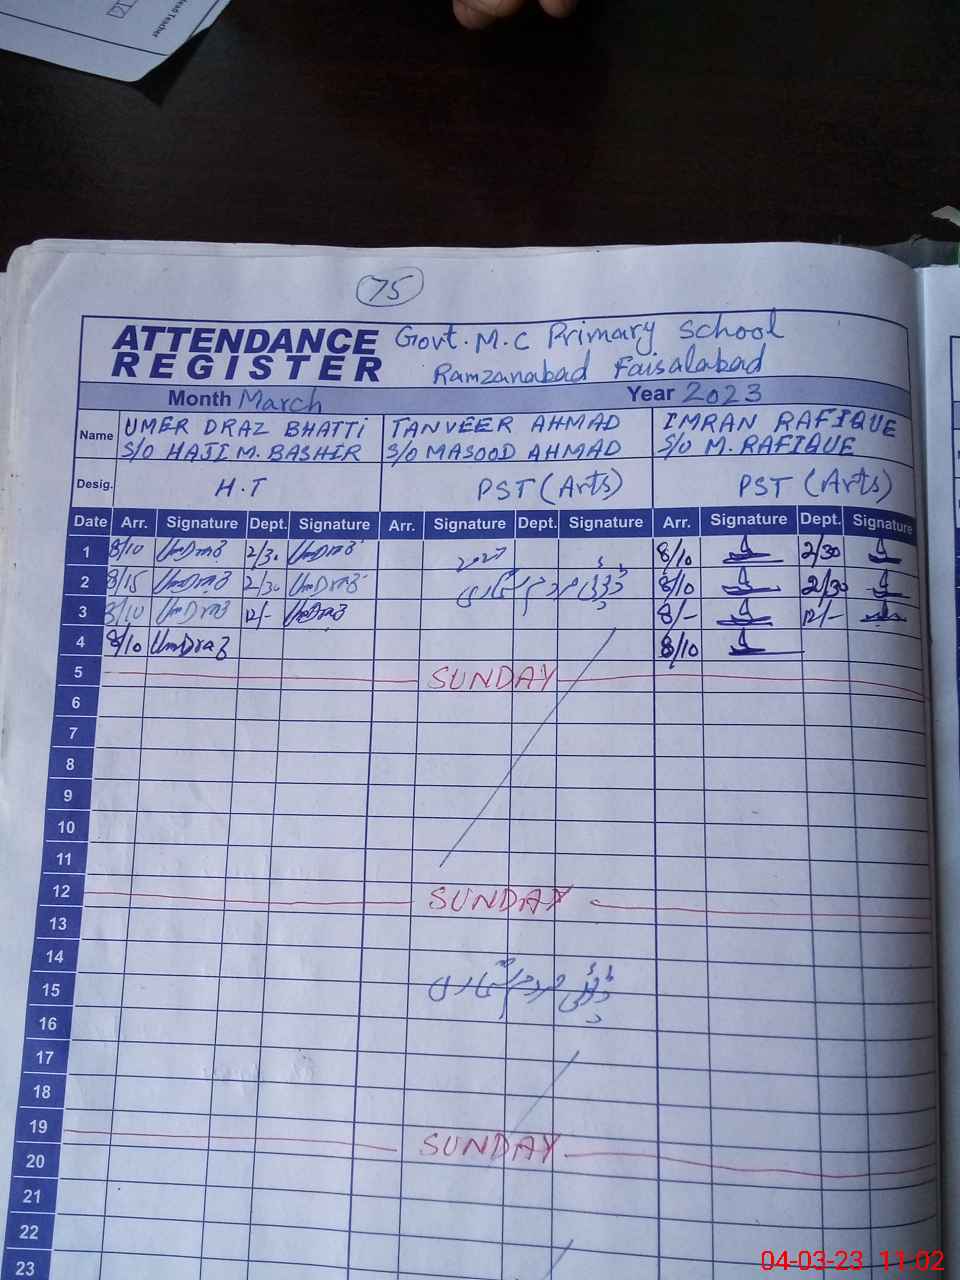 Head Teacher
75
ATTENDANCE REGISTER Govt. M.C Primary School
Ramzanabad Faisalabad
Month March Year 2023
Name UMER DRAZ BHATTI S/O HAJI M. BASHIR TANVEER AHMAD S/O MASOOD AHMAD IMRAN RAFIQUE S/O M. RAFIQUE
Desig. H.T PST (Arts) PST (Arts)
Date Arr. Signature Dept. Signature Arr. Signature Dept. Signature Arr. Signature Dept. Signature
1 8/10 UmDraz 2/30 UmDraz 8/10 2/30
2 8/15 UmDraz 2/30 UmDraz 8/10 2/30
3 8/10 UmDraz 12/- UmDraz 8/- 12/-
4 8/10 UmDraz 8/10
5 SUNDAY
6
7
8
9
10
11
12 SUNDAY
13
14
15
16
17
18
19 SUNDAY
20
21
22
23
04-03-23 11:02